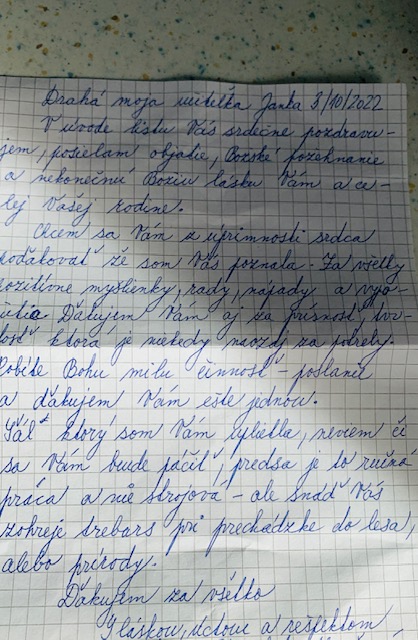 Drahá moja učiteľka Janka 3/10/2022
V úvode listu Vás srdečne pozdravu-
jem, posielam objatie, Bozské požehnanie
a nekonečnú Božiu lásku Vám a ce-
lej Vašej rodine.
Chcem sa Vám z úprimnosti srdca
poďakovať že som Vás poznala. Za všetky
pozitívne myšlienky, rady, nápady a vyu-
Ďakujem Vám aj za prísnosť tvr-
dosť ktorá je niekedy naozaj za potreby.
Robíte Bohu milu činnosť - poslanie
a ďakujem Vám ešte jednou.
Šál ktorý som Vám uplietla, neviem či
sa Vám bude páčiť, predsa je to ručná
práca a nie strojová - ale snáď Vás
zohreje trebars pri prechádzke do lesa,
alebo prírody.
Ďakujem za všetko
S láskou, úctou a rešpektom